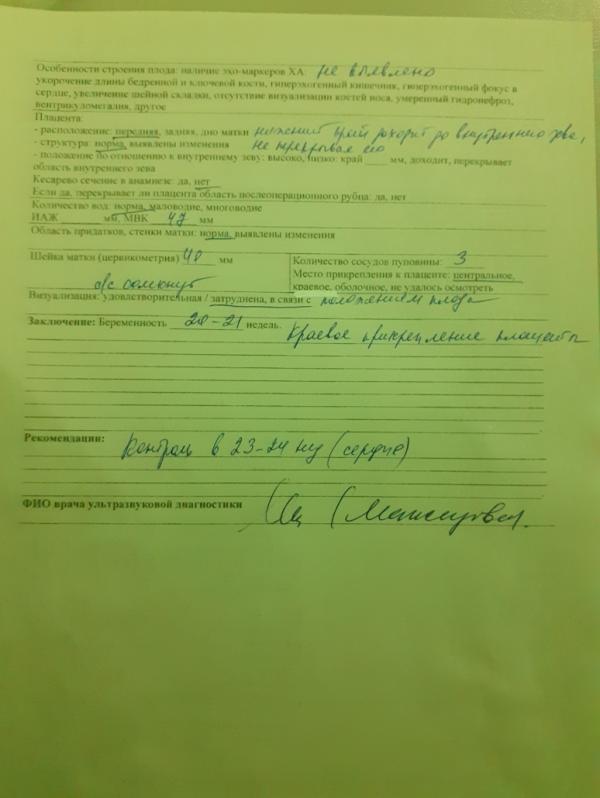 Особенности строения плода: наличие эхо-маркеров ХА: не выявлено
укорочение длины бедренной и ключевой кости, гиперэхогенный кишечник, гиперэхогенный фокус в
сердце, увеличение шейной складки, отсутствие визуализации костей носа, умеренный гидронефроз,
вентрикуломегалия, другое
Плацента:
- расположение: передняя, задняя, дно матки нижний край доходит до внутреннего зева,
- структура: норма, выявлены изменения не перекрывая его
- положение по отношению к внутреннему зеву: высоко, низко: край ____ мм, доходит, перекрывает
область внутреннего зева
Кесарево сечение в анамнезе: да, нет
Если да, перекрывает ли плацента область послеоперационного рубца: да, нет
Количество вод: норма, маловодие, многоводие
ИАЖ ______ мм, МВК 47 мм
Область придатков, стенки матки: норма, выявлены изменения
Шейка матки (цервикометрия) 40 мм
Количество сосудов пуповины: 3
сомкнут
Место прикрепления к плаценте: центральное,
краевое, оболочное, не удалось осмотреть
Визуализация: удовлетворительная / затруднена, в связи с положением плода
Заключение: Беременность 20-21 недель. Краевое прикрепление плаценты
Рекомендации: Контроль в 23-24 н (сердце)
ФИО врача ультразвуковой диагностики